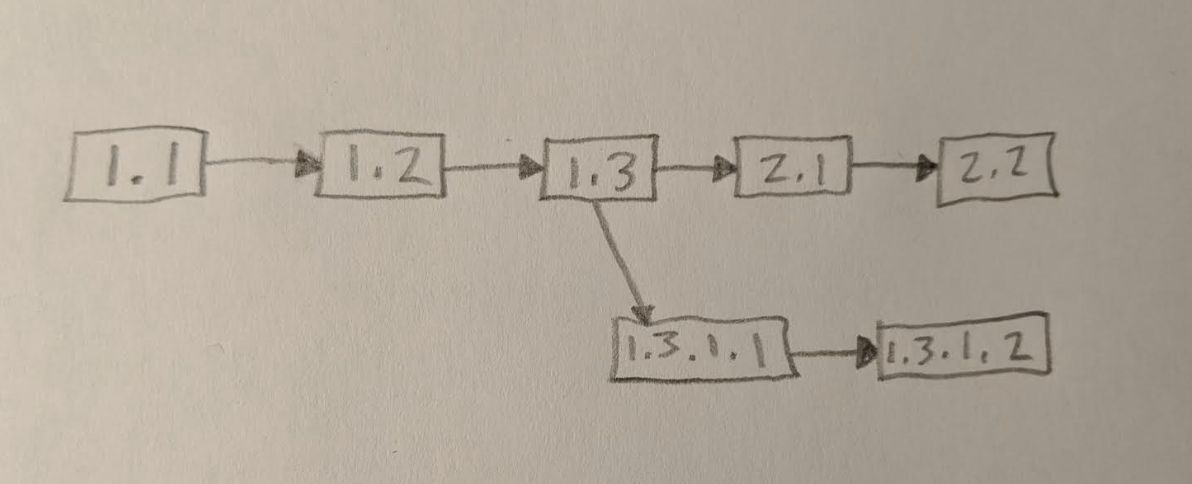 1.1 1.2 1.3 2.1 2.2
1.3.1.1 1.3.1.2